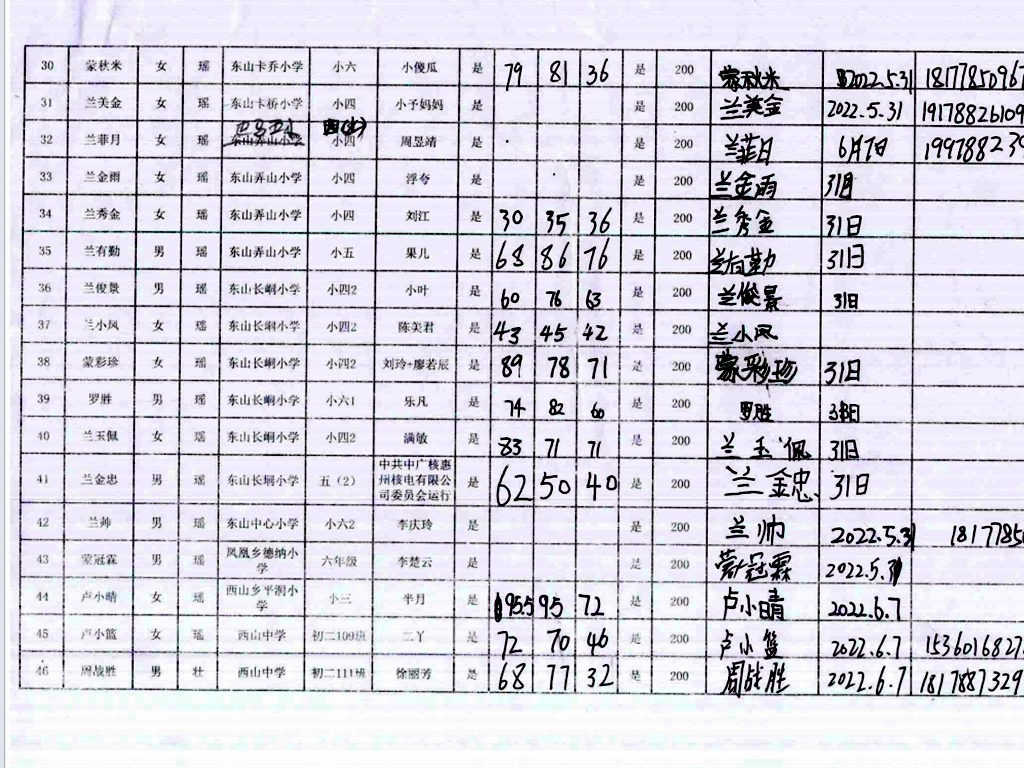 30 蒙秋米 女 瑶 东山卡乔小学 小六 小傻瓜 是 79 81 36 是 200 蒙秋米 2022.5.31 1817785096
31 兰美金 女 瑶 东山卡桥小学 小四 小予妈妈 是 是 200 兰美金 2022.5.31 19178826109
32 兰菲月 女 瑶 东山弄山小学 小四 周昱靖 是 是 200 兰菲月 6月7日 199788239
33 兰金雨 女 瑶 东山弄山小学 小四 浮夸 是 是 200 兰金雨 31日
34 兰秀金 女 瑶 东山弄山小学 小四 刘江 是 30 35 36 是 200 兰秀金 31日
35 兰有勤 男 瑶 东山弄山小学 小五 果儿 是 68 86 76 是 200 兰有勤 31日
36 兰俊景 男 瑶 东山长峒小学 小四2 小叶 是 60 76 63 是 200 兰俊景 31日
37 兰小凤 女 瑶 东山长峒小学 小四2 陈美君 是 43 45 42 是 200 兰小凤
38 蒙彩珍 女 瑶 东山长峒小学 小四2 刘玲+廖若辰 是 89 78 71 是 200 蒙彩珍 31日
39 罗胜 男 瑶 东山长峒小学 小六1 乐凡 是 74 82 60 是 200 罗胜 31日
40 兰玉佩 女 瑶 东山长峒小学 小四2 满敏 是 83 71 71 是 200 兰玉佩 31日
41 兰金忠 男 瑶 东山长峒小学 五（2） 中共中广核惠州核电有限公司委员会运行 是 62 50 40 是 200 兰金忠 31日
42 兰帅 男 瑶 东山中心小学 小六2 李庆玲 是 是 200 兰帅 2022.5.31 1817785
43 蒙冠霖 男 瑶 凤凰乡德纳小学 六年级 李楚云 是 是 200 蒙冠霖 2022.5.31
44 卢小晴 女 瑶 西山乡平洞小学 小三 半月 是 95.5 95 72 是 200 卢小晴 2022.6.7
45 卢小篮 女 瑶 西山中学 初二109班 二丫 是 72 70 40 是 200 卢小篮 2022.6.7 1536016827
46 周战胜 男 壮 西山中学 初二111班 徐丽芳 是 68 77 32 是 200 周战胜 2022.6.7 1817887329